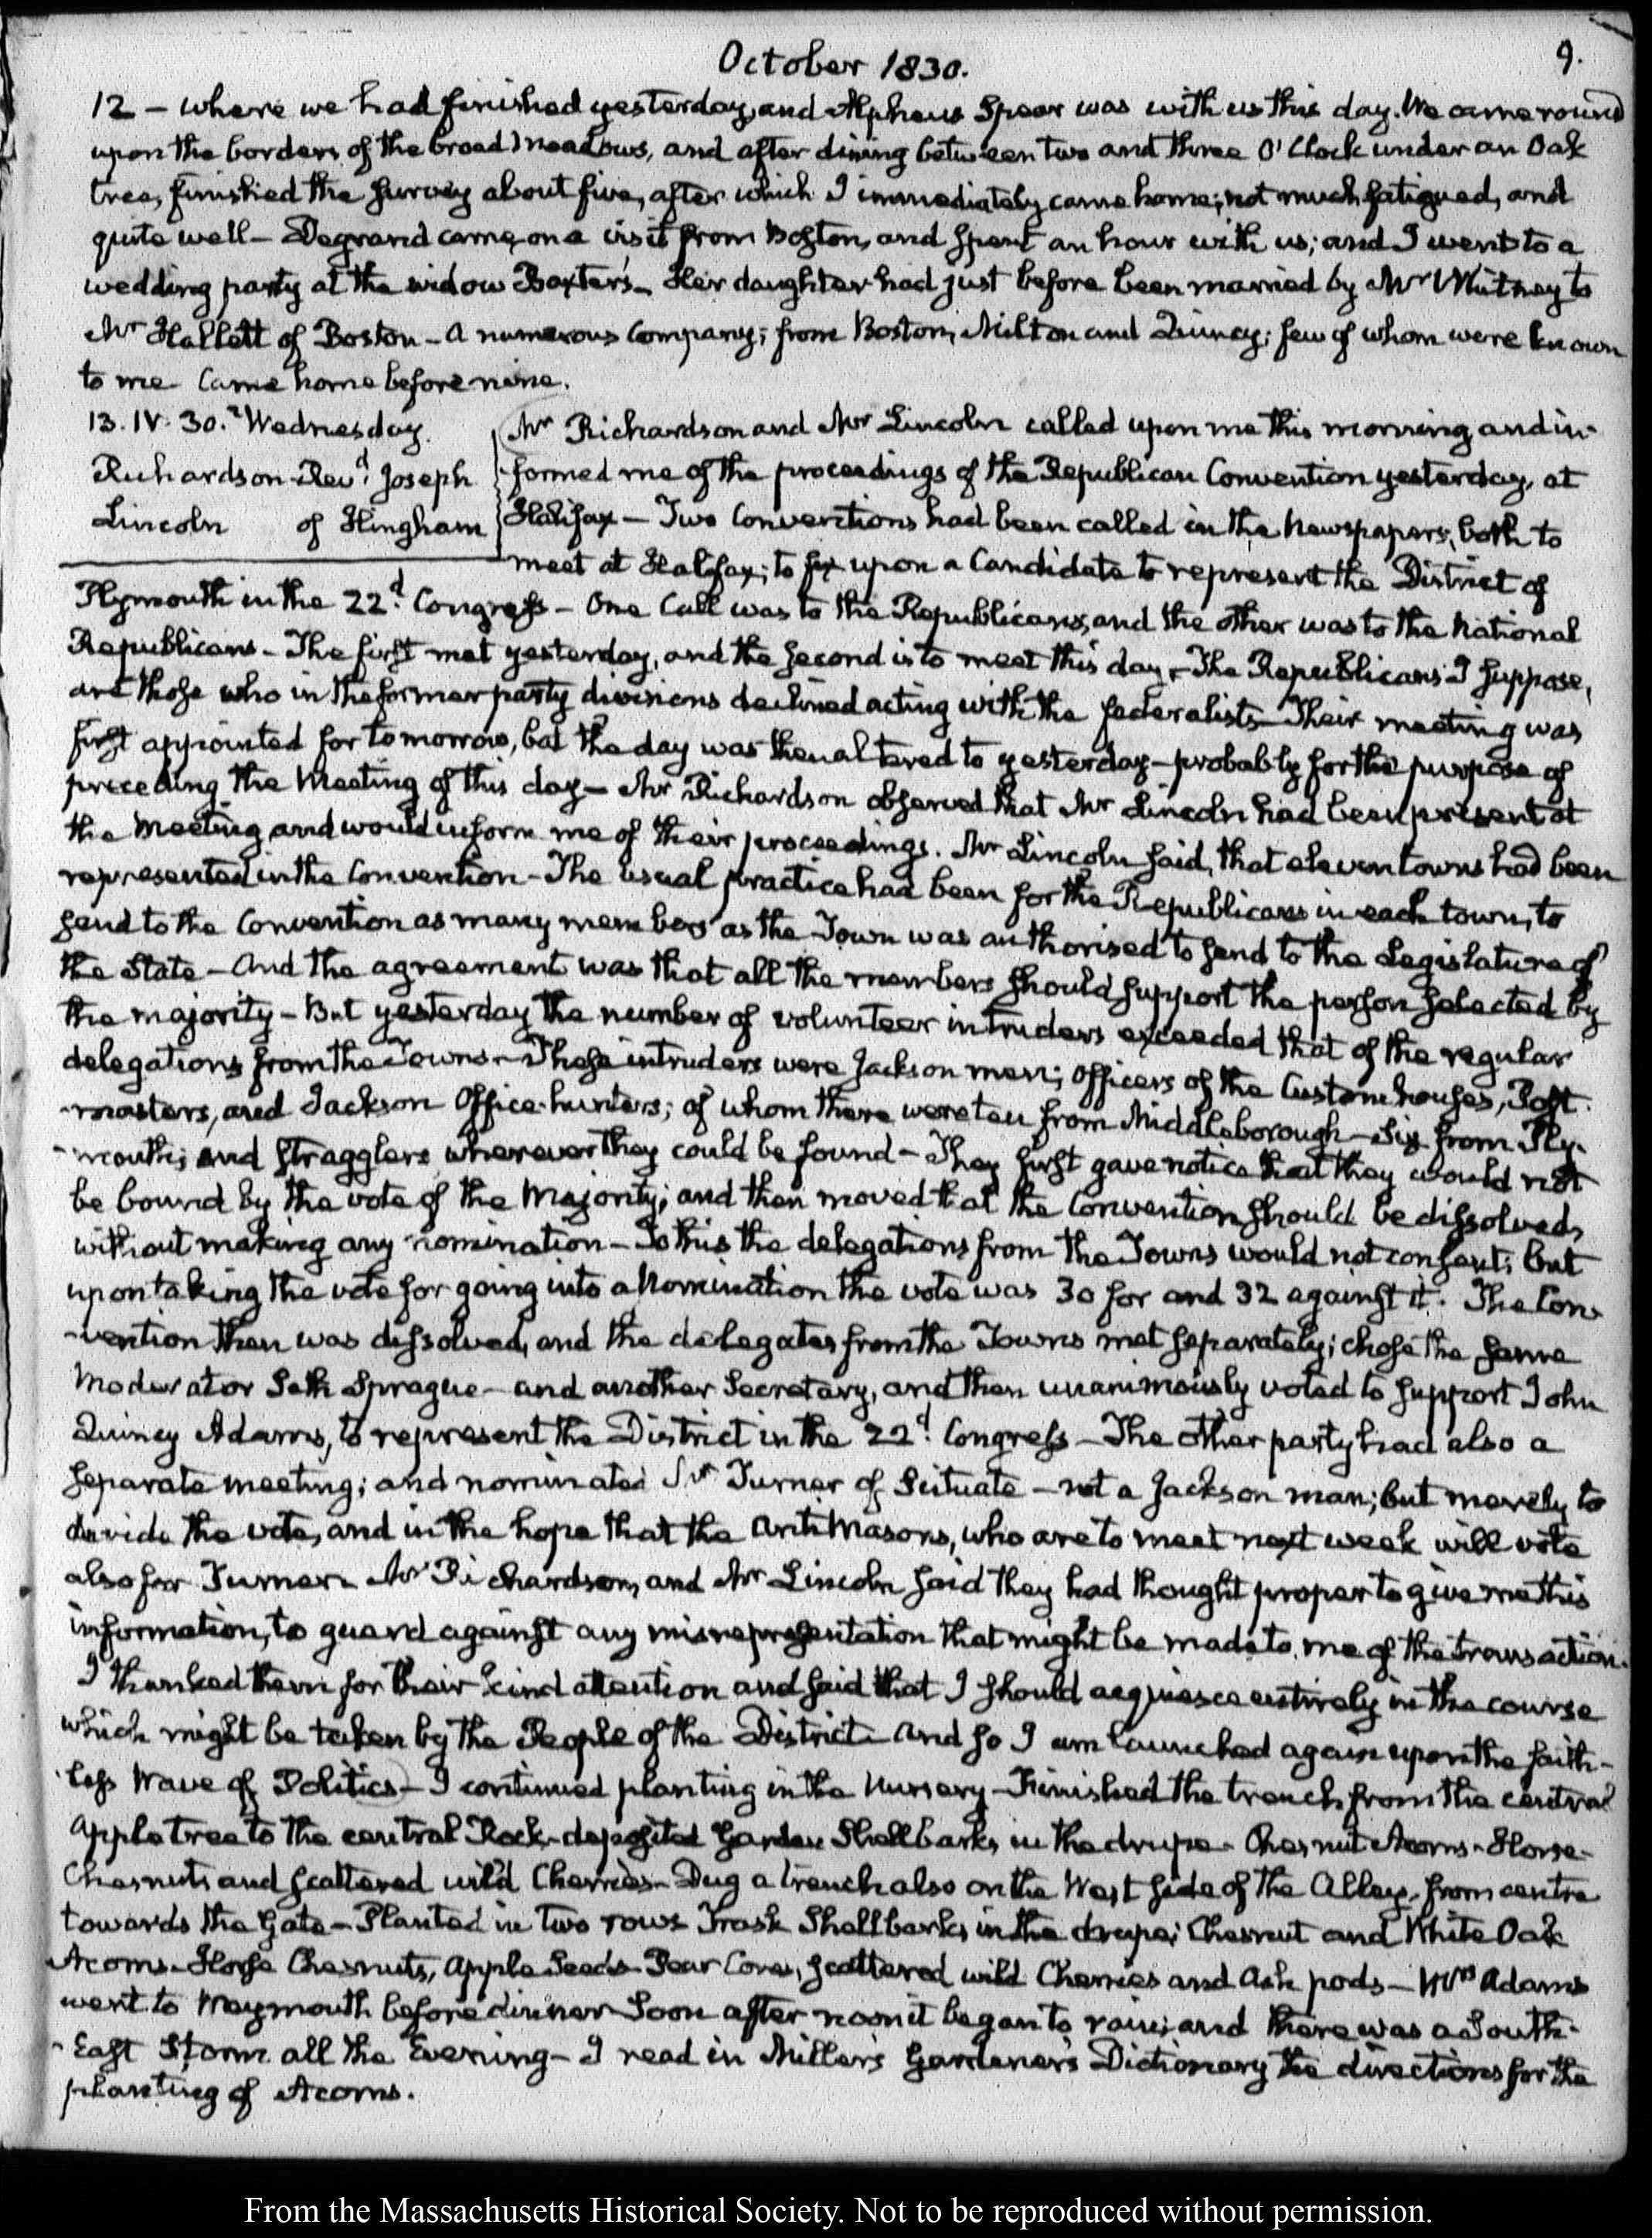 October 1830.
9.
12 – where we had finished yesterday, and Alpheus Spear was with us this day. We came round
upon the borders of the broad meadows, and after dining between two and three O'Clock under an Oak
tree, finished the survey about five, after which I immediately came home; not much fatigued, and
quite well – Degrand came, on a visit from Boston, and spent an hour with us; and I went to a
wedding party at the widow Baxter's – Her daughter had just before been married by Mr Whitney to
Mr Hallett of Boston – A numerous Company; from Boston, Milton and Quincy; few of whom were known
to me – Came home before nine.
13. IV. 30. Wednesday.
Richardson Revd. Joseph
Lincoln of Hingham
Mr Richardson and Mr Lincoln called upon me this morning and in-
formed me of the proceedings of the Republican Convention yesterday, at
Halifax – Two Conventions had been called in the Newspapers, both to
meet at Halifax; to fix upon a Candidate to represent the District of
Plymouth in the 22d. Congress – One Call was to the Republicans, and the other was to the National
Republicans – The first met yesterday, and the second is to meet this day – The Republicans I suppose,
are those who in the former party divisions declined acting with the federalists – Their meeting was
first appointed for tomorrow, but the day was then altered to yesterday – probably for the purpose of
preceding the Meeting of this day – Mr Richardson observed that Mr Lincoln had been present at
the Meeting and would inform me of their proceedings. Mr Lincoln said, that eleven towns had been
represented in the Convention – The usual practice had been for the Republicans in each town, to
send to the Convention as many members as the Town was authorised to send to the Legislature of
the State – And the agreement was that all the members should support the person selected by
the majority – But yesterday the number of volunteer intruders exceeded that of the regular
delegations from the Towns – These intruders were Jackson men; Officers of the Customhouses, Post-
-masters, and Jackson Office-hunters; of whom there were ten from Middleborough – six from Ply-
-mouth; and stragglers wherever they could be found – They first gave notice that they would not
be bound by the vote of the Majority; and then moved that the Convention should be dissolved,
without making any nomination – To this the delegations from the Towns would not consent; but
upon taking the vote for going into a Nomination the vote was 30 for and 32 against it. The Con-
-vention then was dissolved, and the delegates from the Towns met separately; chose the same
Moderator Seth Sprague – and another Secretary, and then unanimously voted to support John
Quincy Adams, to represent the District in the 22d. Congress – The other party had also a
separate meeting; and nominated Turner of Scituate – not a Jackson man; but merely to
divide the vote, and in the hope that the Anti Masons, who are to meet next week will vote
also for Turner – Mr Richardson, and Mr Lincoln said they had thought proper to give me this
information, to guard against any misrepresentation that might be made to me of the transaction.
I thanked them for their kind attention and said that I should acquiesce entirely in the course
which might be taken by the People of the District – And so I am launched again upon the faith-
-less Wave of Politics – I continued planting in the Nursery – Finished the trench from the central
Apple tree to the central Rock – deposited Garden Shellbarks, in the drupe – Chesnut Acorns – Horse-
Chesnuts and scattered wild Cherries – Dug a trench also on the West side of the Alley, from centre
towards the Gate – Planted in two rows Trask Shellbarks in the drupe; Chesnut and White Oak
Acorns – Horse Chesnuts, Apple Seeds – Pear Cores, scattered wild Cherries and Ash pods – Mrs Adams
went to Weymouth before dinner – Soon after noon it began to rain; and there was a South-
-East Storm all the Evening – I read in Miller's Gardener's Dictionary the directions for the
planting of Acorns.
From the Massachusetts Historical Society. Not to be reproduced without permission.